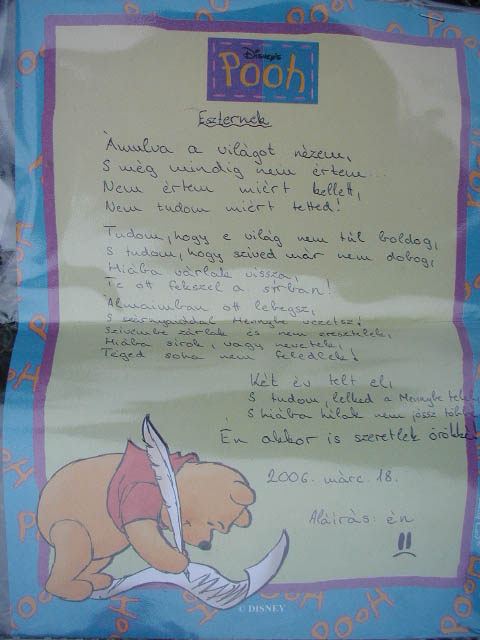 Disney's
Pooh
Eszternek
Ámulva a világot nézem,
S még mindig nem értem...
Nem értem miért kellett,
Nem tudom miért tetted!
Tudom, hogy e világ nem túl boldog,
S tudom, hogy szíved már nem dobog,
Hiába várlak vissza,
Te ott fekszel a sírban!
Álmaimban ott lebegsz,
S szárnyaiddal Mennybe vezetsz!
Szívembe zárlak és nem eresztelek,
Hiába sírok, vagy nevetek,
Téged soha nem feledlek!
Két év telt el,
S tudom, lelked a Mennybe
S hiába hívlak nem jössz
Én akkor is szeretlek örökké!
2006. márc. 18.
Aláírás: én
© DISNEY